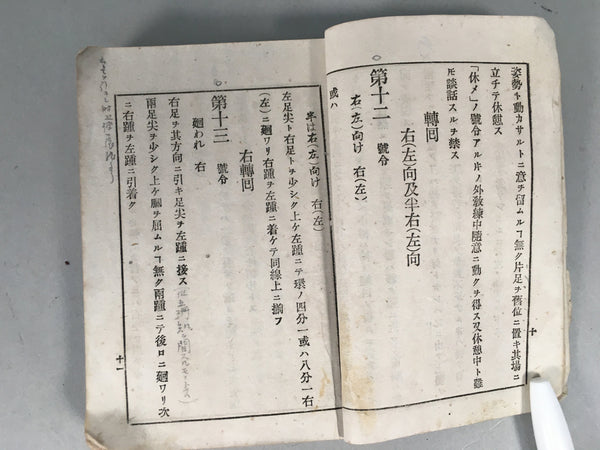 姿勢ト動カサルトニ意ヲ留ムルヿ無ク片足ヲ舊位ニ置キ其場ニ
立チテ休憩ス
「休メ」ノ號令アル片ノ外教練中隨意ニ動クヲ得ス又休憩中ト雖
𪜈談話スルヲ禁ス
轉囘
右(左)向及半右(左)向
第十二 號令
右(左)向け 右(左)
或ハ
十
半は右(左)向け 右(左)
左足尖ト右足トヲ少シク上ケ左踵ニテ環ノ四分一或ハ八分一右
(左)ニ廻ワリ右踵ヲ左踵ニ着ケテ同線上ニ揃フ
右轉囘
第十三 號令
廻われ 右
右足ヲ其方向ニ引キ足尖ヲ左踵ニ接ス
兩足尖ヲ少シク上ケ膕ヲ屈ムルヿ無ク兩踵ニテ後ロニ廻ワリ次
ニ右踵ヲ左踵ニ引着ク
十一